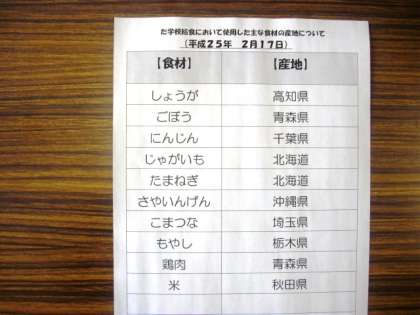 た学校給食において使用した主な食材の産地について
（平成２５年　２月１７日）
【食材】　【産地】
しょうが　高知県
ごぼう　青森県
にんじん　千葉県
じゃがいも　北海道
たまねぎ　北海道
さやいんげん　沖縄県
こまつな　埼玉県
もやし　栃木県
鶏肉　青森県
米　秋田県